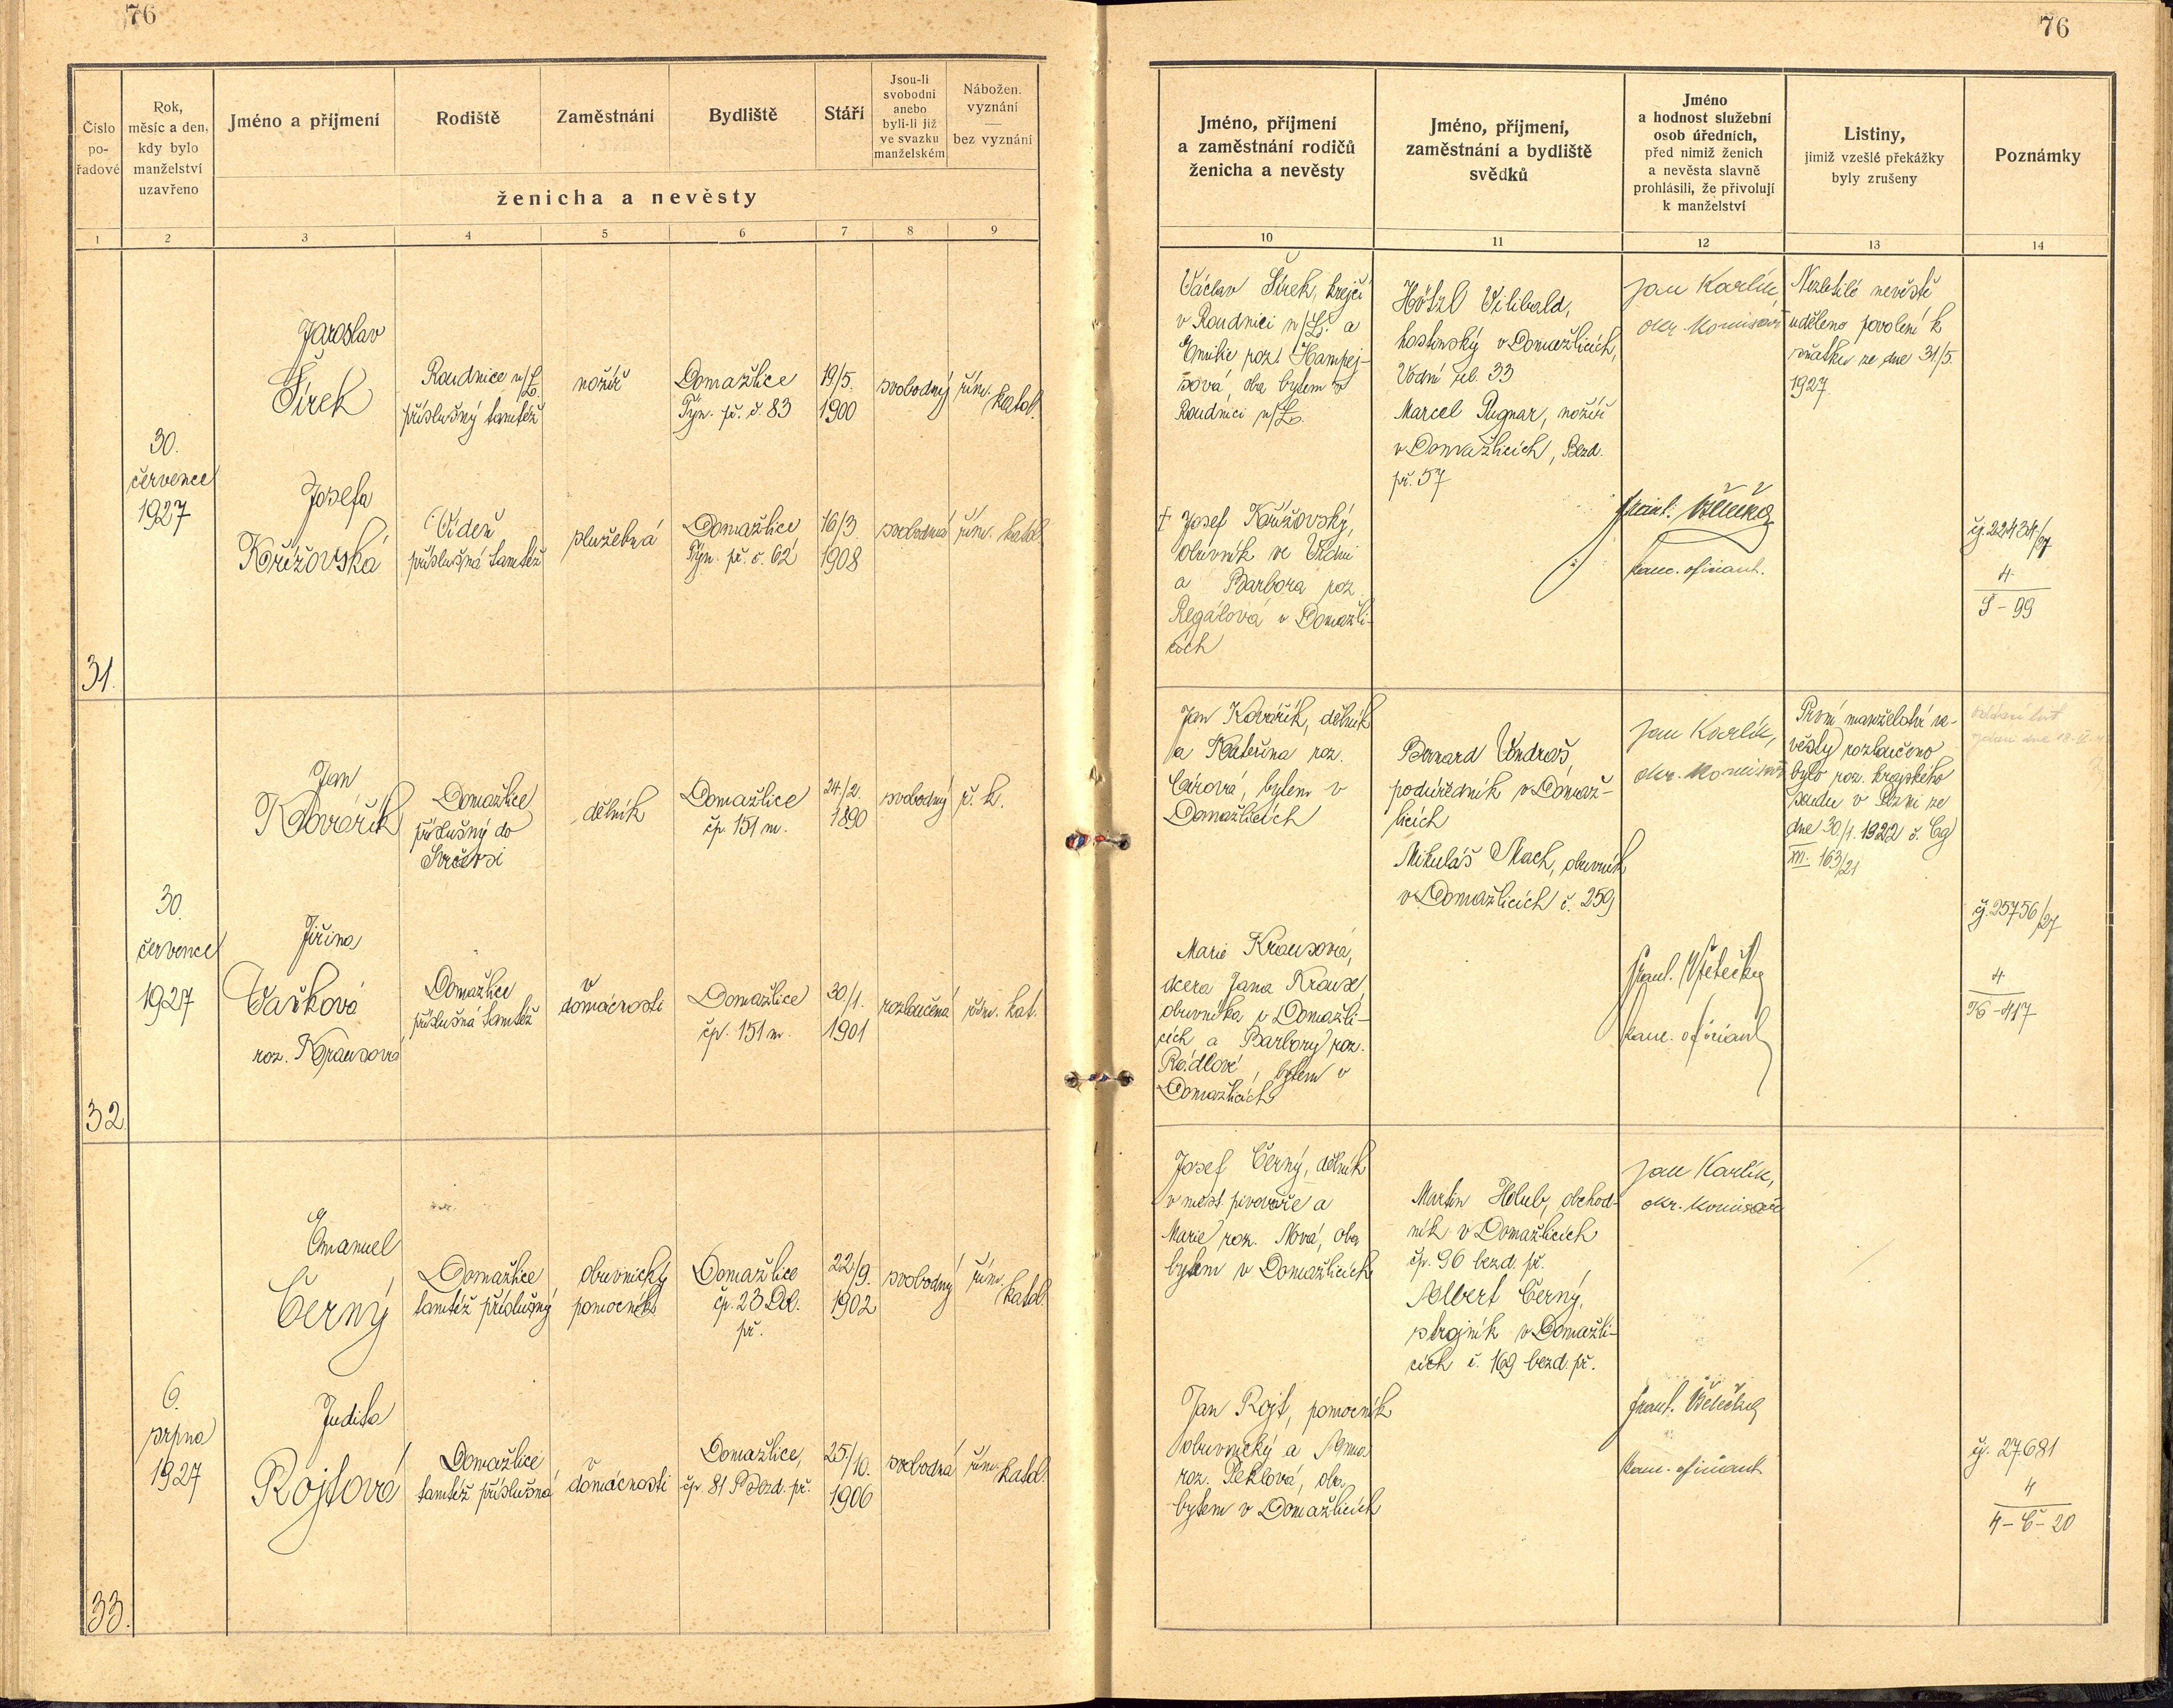 76
76
Číslo
po-
řadové
Rok,
měsíc a den,
kdy bylo
manželství
uzavřeno
Jméno a příjmení
Rodiště
Zaměstnání
Bydliště
Stáří
Jsou-li
svobodni
anebo
byli-li již
ve svazku
manželském
Nábožen.
vyznání
bez vyznání
ženicha a nevěsty
1 2 3 4 5 6 7 8 9
Jméno, příjmení
a zaměstnání rodičů
ženicha a nevěsty
Jméno, příjmení,
zaměstnání a bydliště
svědků
Jméno
a hodnost služební
osob úředních,
před nimiž ženich
a nevěsta slavně
prohlásili, že přivolují
k manželství
Listiny,
jimiž vzešlé překážky
byly zrušeny
Poznámky
10 11 12 13 14
31.
30.
července
1927
Jaroslav
Šírek
Roudnice n/L.
příslušný tamtéž
nožíř
Domažlice
Týn. př. č 83
19/5.
1900
svobodný
řím.
katol.
Josefa
Křížovská
Vídeň
příslušná tamtéž
služebná
Domažlice
Týn. př. č. 62
16/3.
1908
svobodná
řím. katol.
Václav Šírek, krejčí
v Roudnici n/L. a
Emilie roz. Hampej-
sová, oba bytem v
Roudnici n/L.
† Josef Křížovský,
obuvník ve Vídni
a Barbora roz.
Regálová v Domažli-
cích
Hötzl Vilibald,
hostinský v Domažlicích,
Vodní ul. 33
Marcel Pugnar, nožíř
v Domažlicích, Bezd.
př. 57
Jan Karlík,
okr. komisař
Frant. Všetečka
kanc. oficiant.
Nezletilé nevěstě
uděleno povolení k
sňatku ze dne 31/5.
1927
čj. 22434/27
4
Š - 99
32.
30.
července
1927
Jan
Kovařík
Domažlice
příslušný do
dělník
Domažlice
čp. 151 m.
24/2.
1890
svobodný
ř. k.
Jiřina
Vašková
roz. Krausová
Domažlice
příslušná tamtéž
v
domácnosti
Domažlice
čp. 151 m.
30/1.
1901
rozloučená
řím. kat.
Jan Kovařík, dělník
a Kateřina roz.
bytem v
Domažlicích
Marie Krausová,
dcera Jana Krause,
obuvníka v Domažli-
cích a Barbory roz.
Rédlové, bytem v
Domažlicích
Bernard Vondraš,
podúředník v Domaž-
licích
Mikuláš Mach, obuvník
v Domažlicích č. 259
Jan Karlík,
okr. komisař
Frant. Všetečka
kanc. oficiant
První manželství ne-
věsty rozloučeno
bylo roz. krajského
soudu v Plzni ze
dne 30/1. 1922 č. Cg
163/21
Oddací list
čj. 25756/27
4
K - 417
33.
6.
srpna
1927
Emanuel
Černý
Domažlice
tamtéž příslušný
obuvnický
pomocník
Domažlice
čp. 23 Dol.
př.
22/9.
1902
svobodný
řím.
katol.
Judita
Rojtová
Domažlice
tamtéž příslušná
v
domácnosti
Domažlice,
čp. 81 Bezd. př.
25/10.
1906
svobodná
řím. katol.
Josef Černý, dělník
v měst. pivováře a
Marie roz. Nová, oba
bytem v Domažlicích
Jan Rojt, pomocník
obuvnický a Anna
roz. Peklová, oba
bytem v Domažlicích
Martin Holub, obchod-
ník v Domažlicích
čp. 96 bezd. př.
Albert Černý,
strojník v Domažli-
cích č. 169 bezd. př.
Jan Karlík,
okr. komisař
Frant. Všetečka
kanc. oficiant
čj. 27.681
4
4 - Č - 20